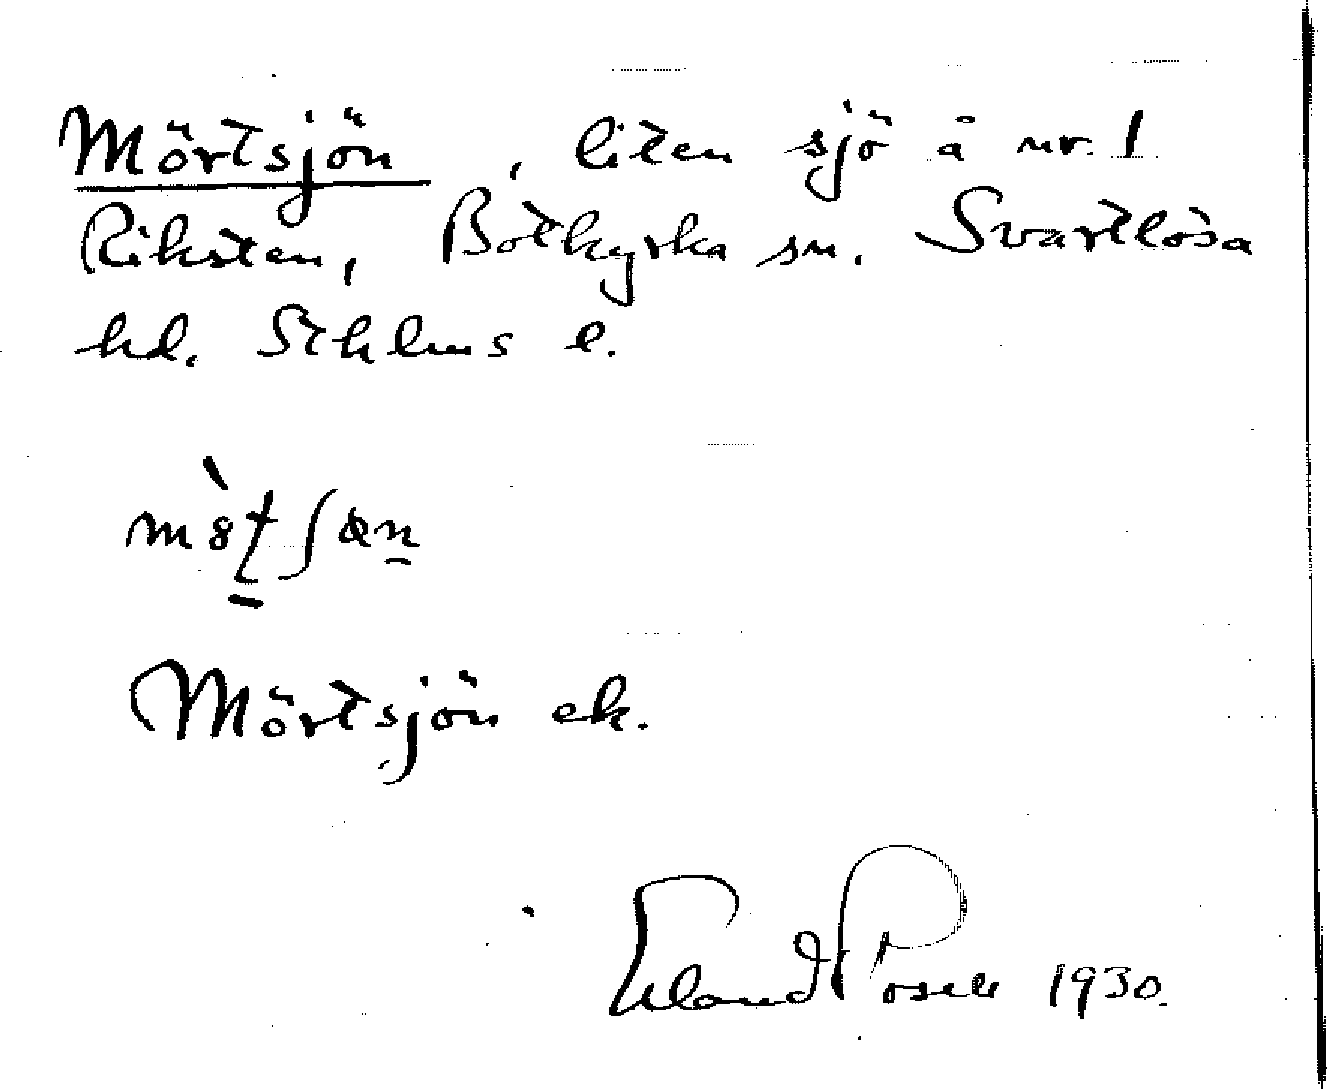 Mörtsjön, liten sjö å nr. 1
Riksten, Botkyrka sn. Svartlösa
hd. Sthlms l.
Mörtsjön ek.
Erland Rosell 1930.